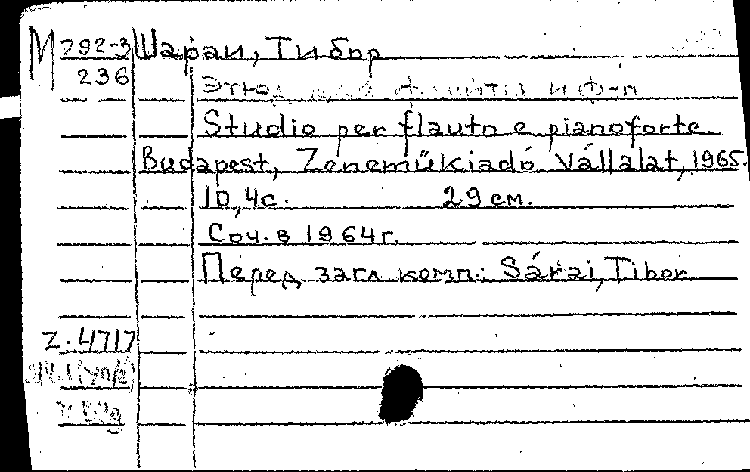 М 292-3 Шараи, Тибор
236
Этюд для флейты и ф-п
Studio per flauto e pianoforte.
Budapest, Zeneműkiadó Vállalat, 1965.
10, 4с. 29 см.
Соч. в 1964 г.
Перед загл. комп.: Sárai, Tibor
Z. 4717